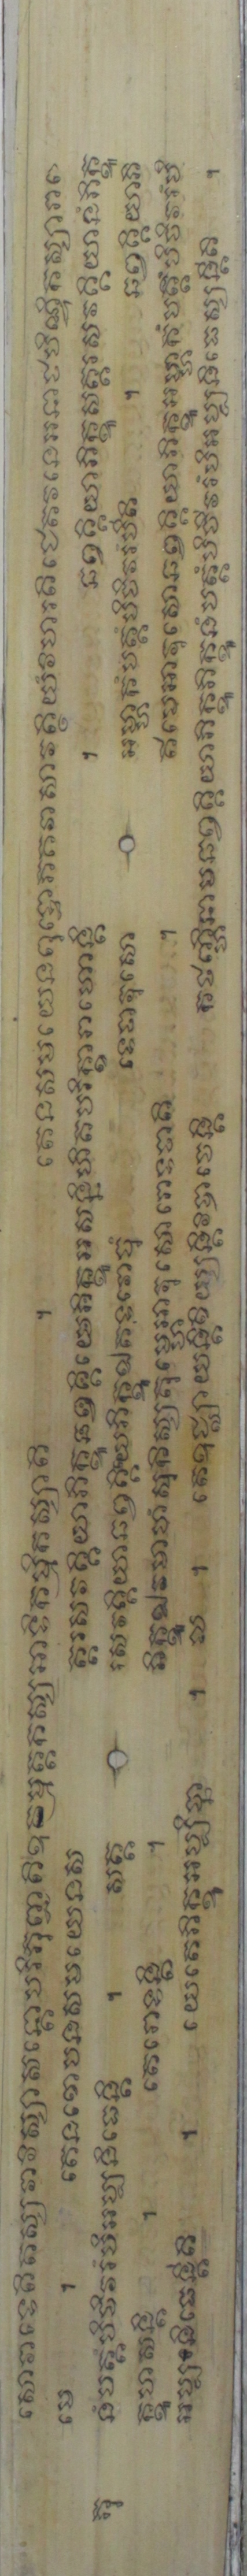 សោវាទេតិតស្សវាវិស្សាសន្តោបរិភុញ្ជតិឧម្មត្តកស្សអាទិកម្មិកស្សាតិ ។ តេនសមយេនពុទ្ធោភគវាសាវត្ថិយំវិហរតិជេតវនេអនាថបិណ្ឌិកស្សារា
មេ ។ តេនខោបនសមយេនស ត្តរសវគ្គិយាភិក្ខូឆព្វគ្គិយេភិក្ខូអសន្និហិតបរិក្ខារាហោន្តិ ។ ឆព្វគ្គិយាភិក្ខូសត្តរសវគ្គិយានំភិក្ខូ
នំបត្តំបិចីវរំបិអប្បនិធេន្តិ ។ សត្ត រសវគ្គិយាឆព្វគ្គិយេភិក្ខូឯតទវោចុំ ទេថាវុសោ អម្ហាកំបត្តំបិចីវរំបីតិ ។ ឆព្វគ្គិយាភិ
ក្ខូហសន្តិ ។ តេរោទន្តិ ។ ភិក្ខូឯវមាហំសុកិស្សតុម្ហេអាវុសោរោទថាតិ ។ ឥមេអាវុសោឆព្វគ្គិយាភិក្ខូអម្ហាកំបត្តំបិចីវរំបិ
អប្បនិធេន្តីតិ ។ យេតេភិក្ខូអប្បិច្ឆា ។ បេ ។ តេឧជ្ឈាយន្តិខិយ្យន្តិវិបាចេន្តិ កថញ្ហិនាមឆព្វគ្គិយាភិក្ខូភិក្ខូនំបត្តំបិចីវរំបិអប្បនិធេស្សន្តីតិ ។